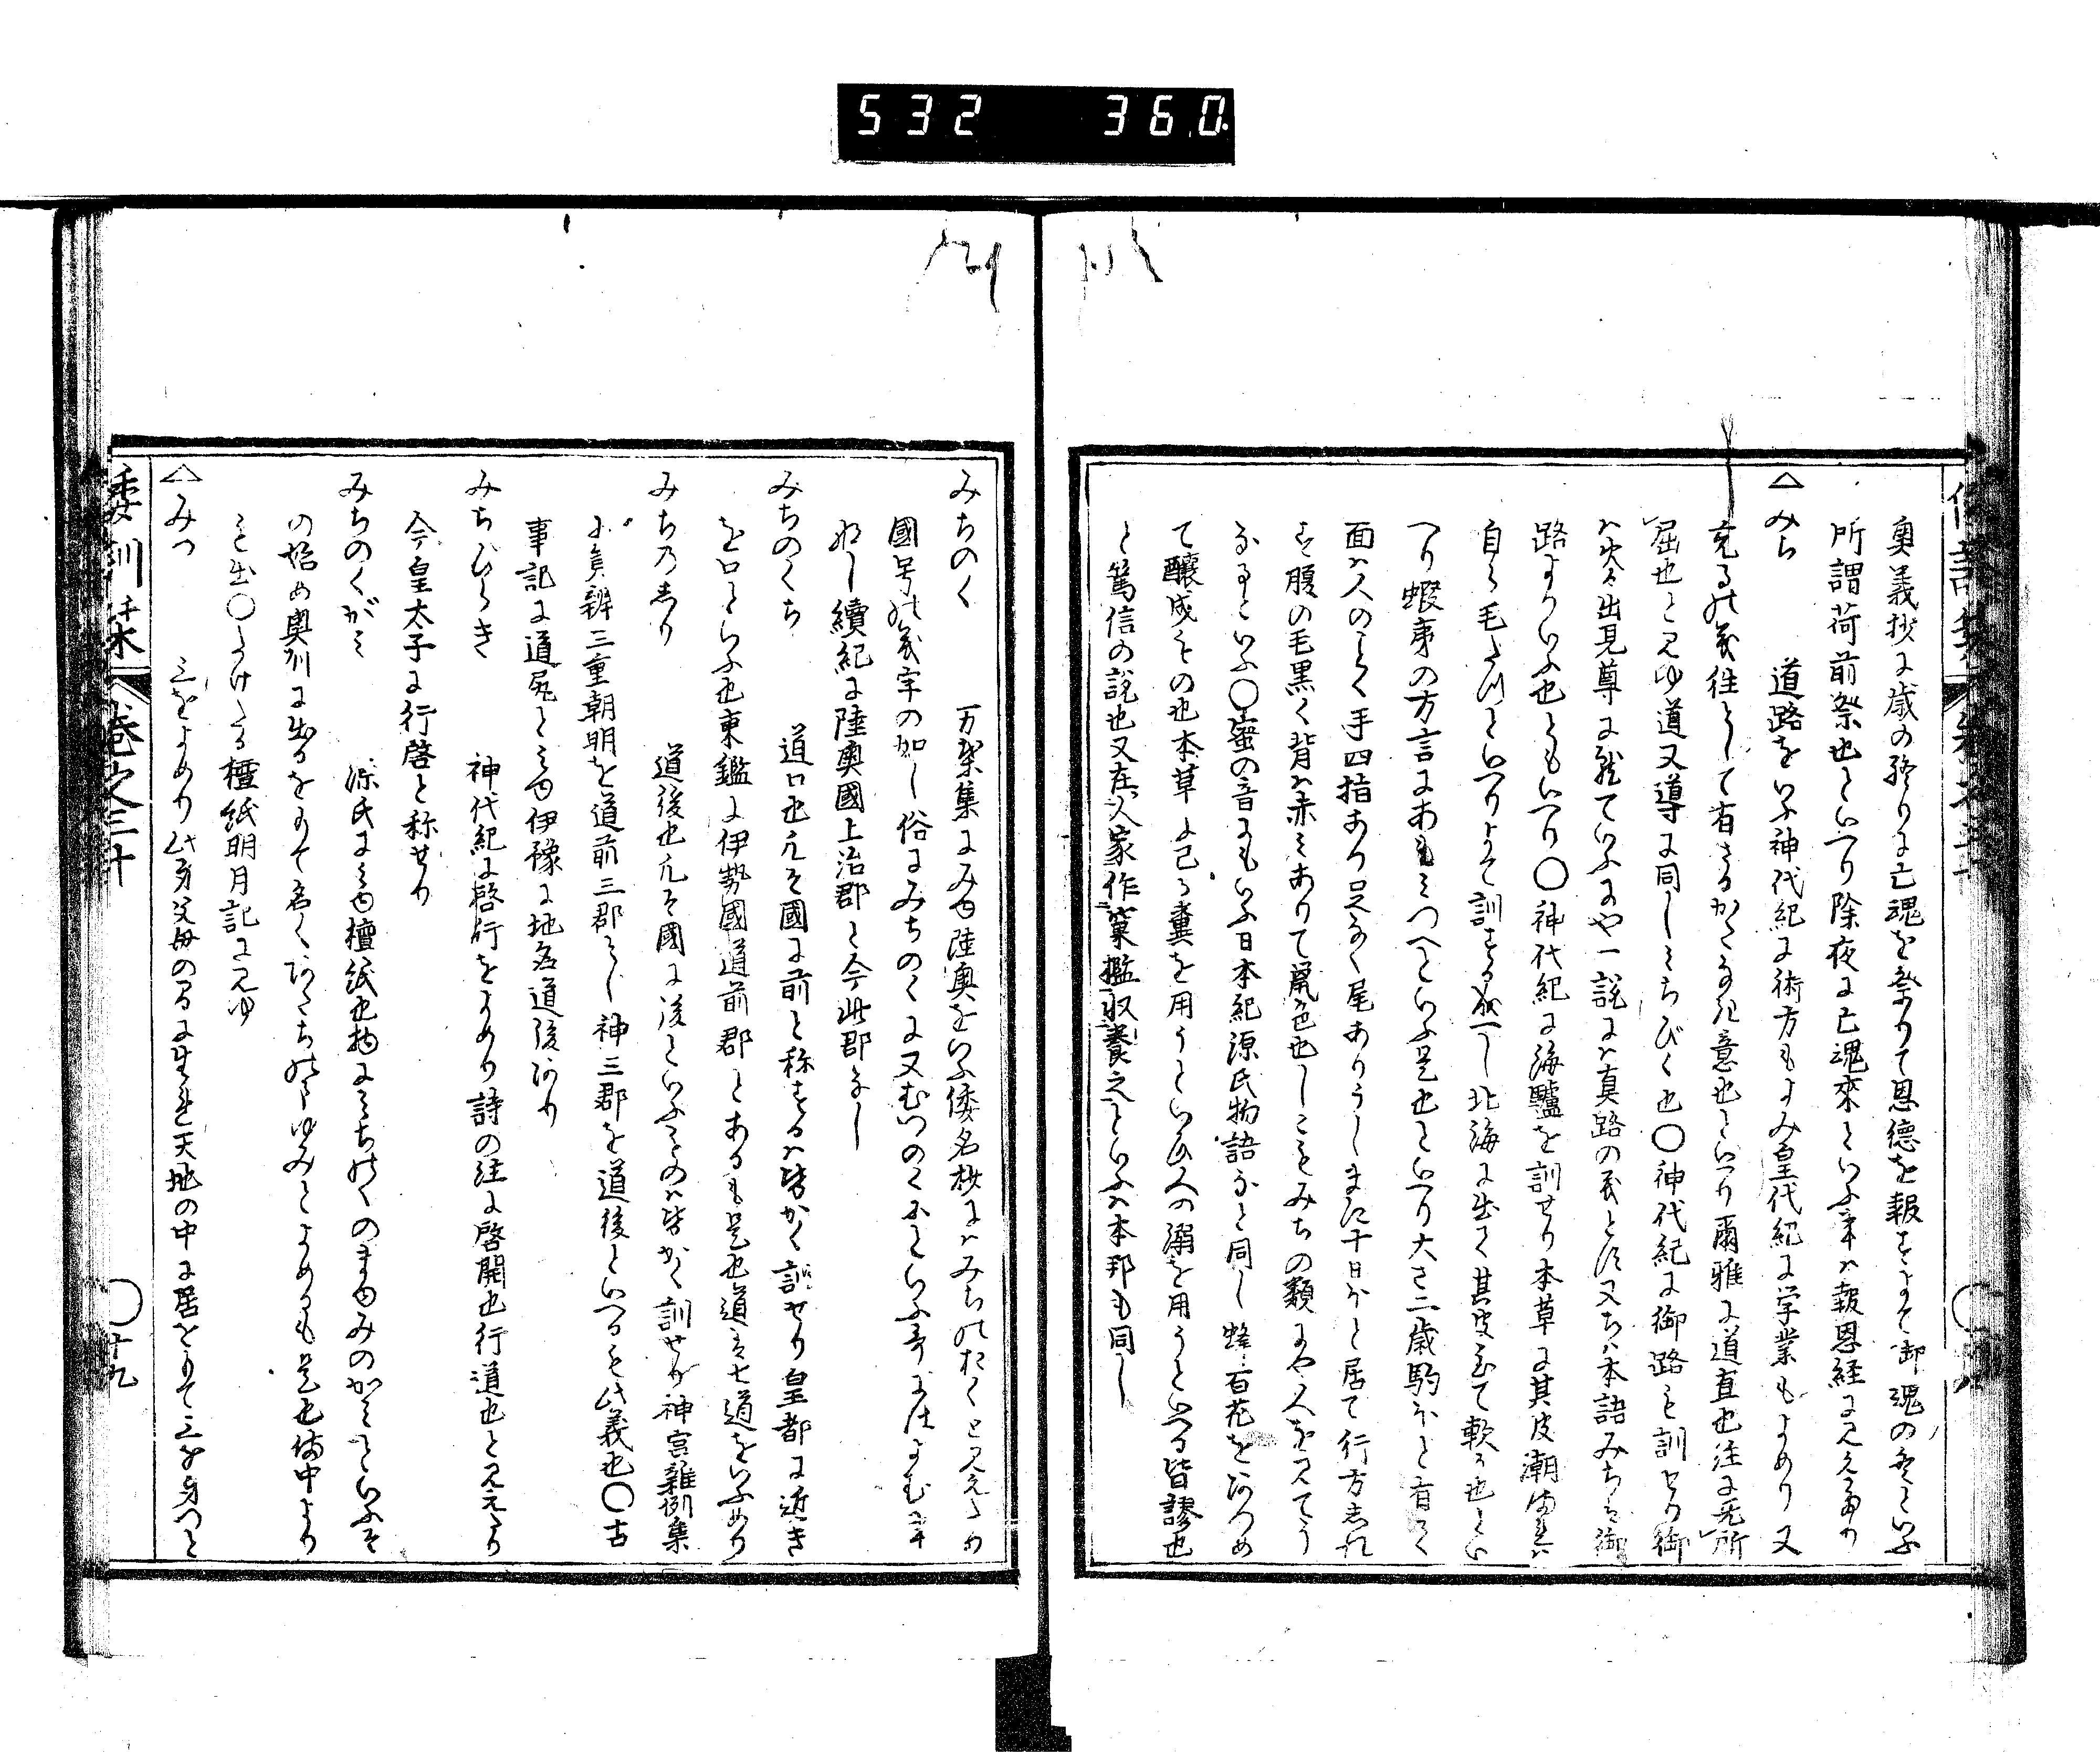 532 360
奥義抄に歳の終りに亡魂を祭りて恩徳を報すよて御魂の冬といふ
所謂荷前祭也といへり除夜に亡魂來といふ事ハ報恩経に見えたり
△みち 道路をいふ神代紀に術方もよみ皇代紀に学業もよめり又
充るの義往として有さるかたなき意也といへり爾雅に道直也注に无所
屈也と見ゆ道又導に同しみちびく也〇神代紀に御路を訓せり御
ハ火々出見尊に就ていふにや一説にハ真路の義とす又ちハ本語みちハ御
路よりいふ也ともいへり〇神代紀に海驢を訓せり本草に其皮潮満れハ
自ら毛たつといへりよて訓する成へし北海に出て其皮至て軟か也とい
へり蝦夷の方言にあもミつへといふ是也といへり大さ二歳駒ほと有て
面ハ人のことく手四指あり足なく尾ありうしまに十日ほと居て行方しれ
す腹の毛黒く背ハ赤みありて鼠色也しこもみちの類にや人を見てう
なるといふ〇蜜の音にもいふ日本紀源氏物語なと同し蜂百花をあつめ
て釀成もの也本草に己か糞を用うといひ人の溺を用うといへる皆謬也
と篤信の説也又在人家作窠檻収養之といふハ本邦も同し
みちのく 万葉集にみゆ陸奥をいふ倭名抄にハみちのおくと見えたり
國号の義字の如し俗にみちのくに又むつのくになといふ哥にはよむま
なし續紀に陸奥國上治郡と今此郡なし
みちのくち 道口也凡そ國に前と称するハ皆かく訓せり皇都に近き
を口といふ也東鑑に伊勢國道前郡とあるも是也道ハ七道をいふめり
みち乃しり 道後也凡そ國に後といふものハ皆かく訓せり神宮雜例集
に員辨三重朝明を道前三郡とし神三郡を道後といへるも此義也〇古
事記に道尻とみゆ伊豫に地名道後あり
みちびらき 神代紀に啓行をよめり詩の注に啓開也行道也と見えたり
今皇太子に行啓と称せり
みちのくがミ 源氏にみゆ檀紙也物にみちのくのまゆみのかミといふそ
の始め奥州に出るをもて名くあたちのまゆみとよめるも是也備中より
も出〇たけたる檀紙明月記に見ゆ
△みつ 三をよめり此身父母の間に生れ天地の中に居をもて三を身つと
倭訓栞 巻之三十 〇十九